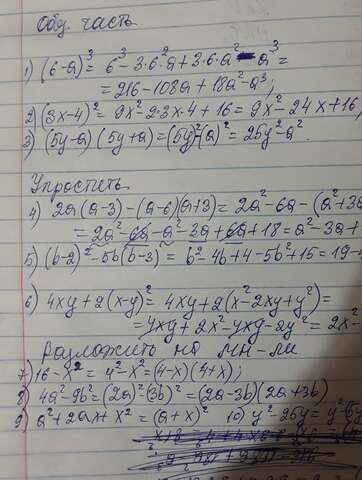 Общ. часть
1) (6-a)³ = 6³ - 3·6²a + 3·6·a² - a³ =
= 216 - 108a + 18a² - a³;
2) (3x-4)² = 9x² - 2·3x·4 + 16 = 9x² - 24x + 16,
3) (5y-a)(5y+a) = (5y)²-(a)² = 25y² - a².
Упростить
4) 2a(a-3) - (a-6)(a+3) = 2a² - 6a - (a² + 3a
= 2a² - 6a - a² - 3a + 6a + 18 = a² - 3a +
5) (b-2)² - 5b(b-3) = b² - 4b + 4 - 5b² + 15 = 19 - 4
6) 4xy + 2(x-y)² = 4xy + 2(x² - 2xy + y²) =
= 4xy + 2x² - 4xy - 2y² = 2x² -
Разложить на мн-ли
7) 16 - x² = 4² - x² = (4-x)(4+x);
8) 4a² - 9b² = (2a)² (3b)² = (2a-3b)(2a+3b)
9) a² + 2ax + x² = (a+x)² 10) y² - 25y = y²